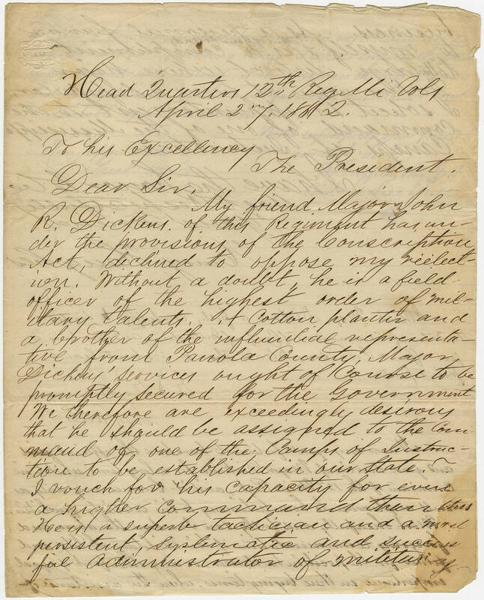 Head Quarters 12th Reg Mi Vols
April 27. 1862.
To his Excellency
The President.
Dear Sir.
My friend Major John
R. Dickens of this Regiment has un-
der the provisions of the Conscription
Act, declined to oppose my reelect-
ion. Without a doubt, he is a field
officer of the highest order of mil-
itary talents. A Cotton planter and
a brother of the influential representa-
tive from Panola County, Major
Dickens' services ought of Course to be
promptly secured for the Government
We therefore are exceedingly desirous
that he should be assigned to the Com-
mand of one of the Camps of Instruc-
tion to be established in our State.
I vouch for his capacity for even
a higher Command than this
He is a superb tactician and a most
persistent, systematic and success
ful administrator of military